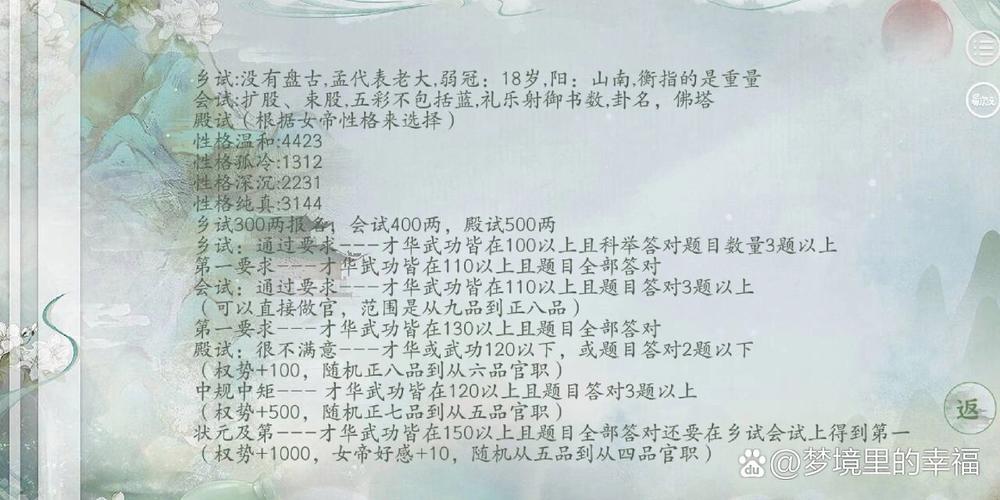 乡试:没有盘古,孟代表老大,弱冠：18岁,阳：山南,衡指的是重量
会试:扩股、束股,五彩不包括蓝,礼乐射御书数,卦名，佛塔
殿试（根据女帝性格来选择）
性格温和:4423
性格孤冷:1312
性格深沉:2231
性格纯真:3144
乡试300两报名，会试400两，殿试500两
乡试：通过要求---才华武功皆在100以上且科举答对题目数量3题以上
第一要求---才华武功皆在110以上且题目全部答对
会试：通过要求---才华武功皆在110以上且题目答对3题以上
（可以直接做官，范围是从九品到正八品）
第一要求---才华武功皆在130以上且题目全部答对
殿试：很不满意---才华或武功120以下，或题目答对2题以下
（权势+100，随机正八品到从六品官职）
中规中矩--- 才华武功皆在120以上且题目答对3题以上
（权势+500，随机正七品到从五品官职）
状元及第---才华武功皆在150以上且题目全部答对还要在乡试会试上得到第一
（权势+1000，女帝好感+10，随机从五品到从四品官职）
返
@梦境里的幸福